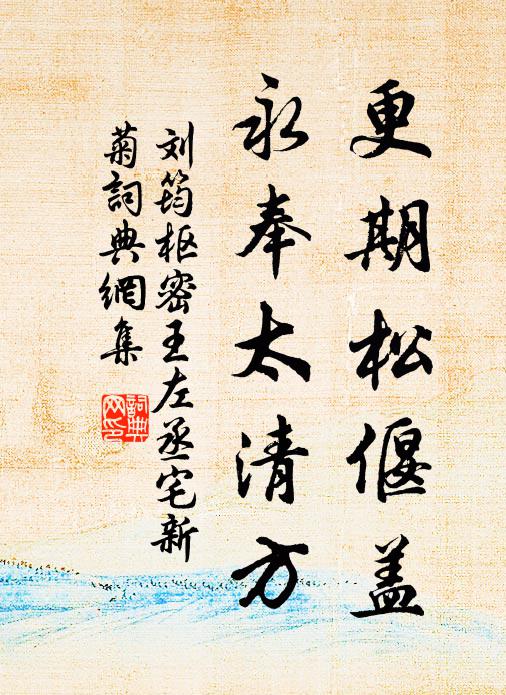 更期松偃盖
永奉太清方
刘筠枢密王左丞宅新
菊詞典網集
詞典网印